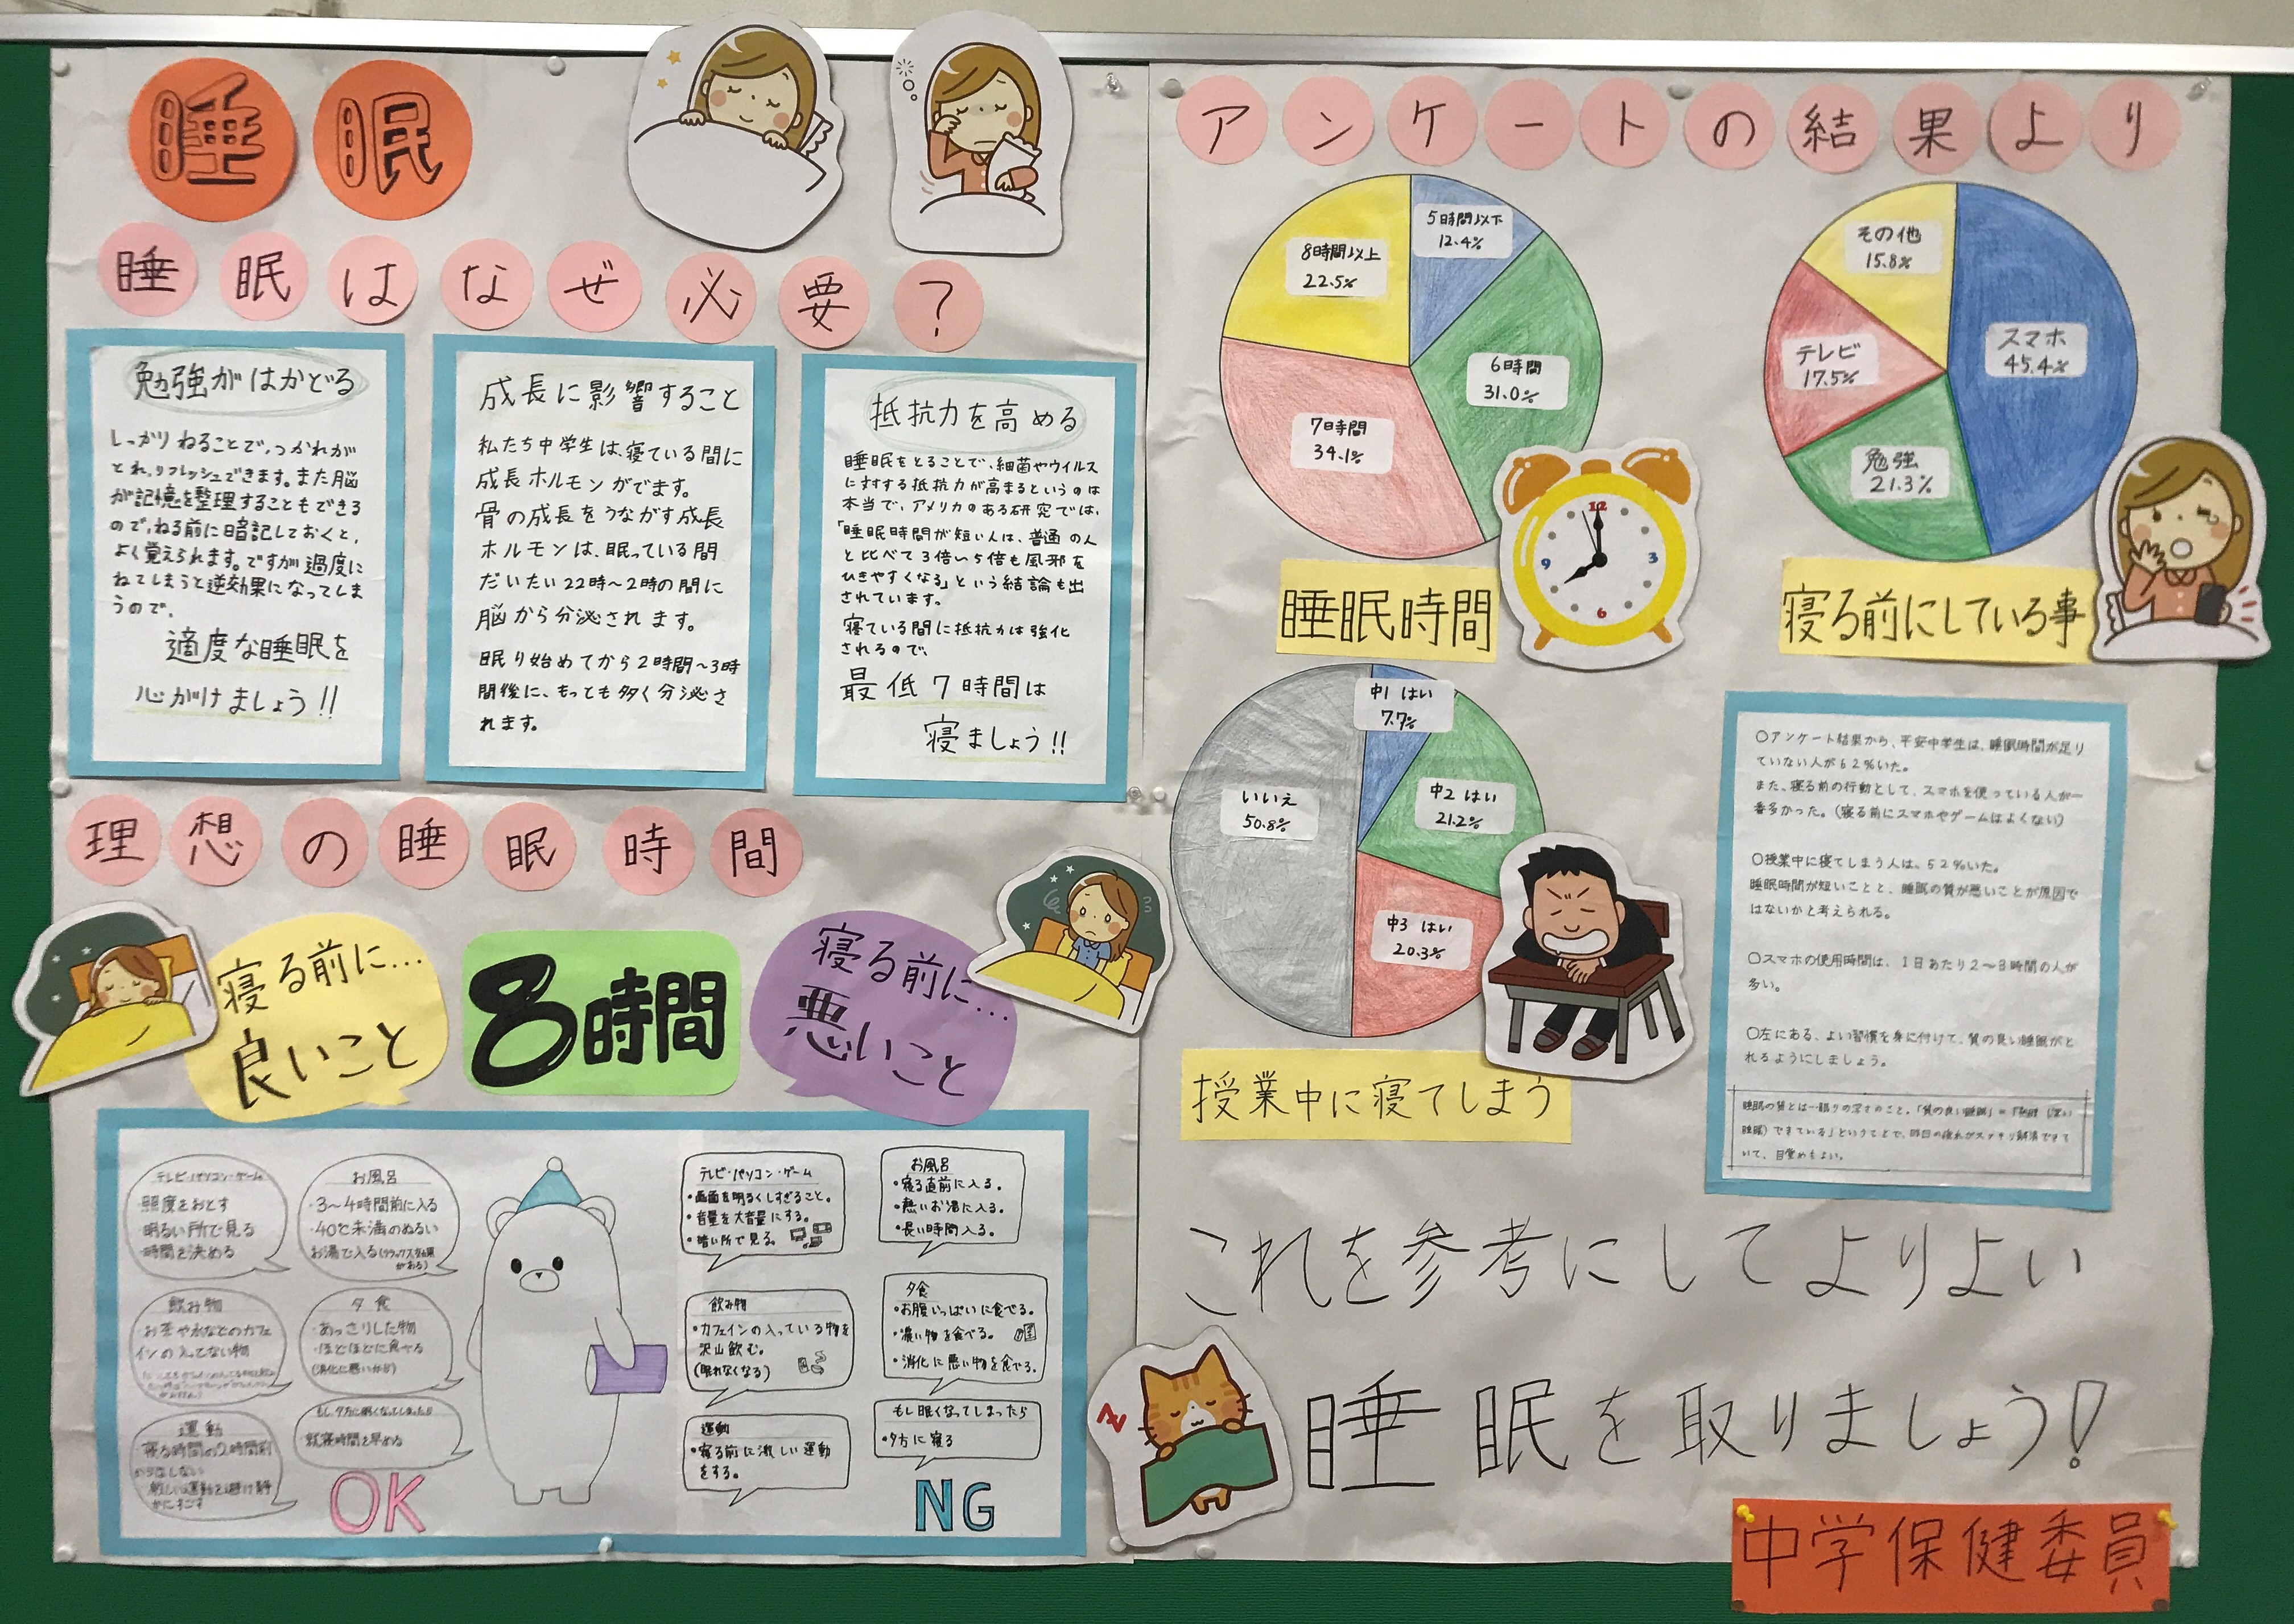 睡眠
睡眠はなぜ必要?
勉強がはかどる
しっかりねることで、つかれが
とれ、リフレッシュできます。また脳
が記憶を整理することもできる
ので、ねる前に暗記しておくと、
よく覚えられます。ですが過度に
ねてしまうと逆効果になってしま
うので、
適度な睡眠を
心がけましょう!!
成長に影響すること
私たち中学生は、寝ている間に
成長ホルモンがでます。
骨の成長をうながす成長
ホルモンは、眠っている間
だいたい22時〜2時の間に
脳から分泌されます。
眠り始めてから2時間〜3時
間後に、もっとも多く分泌さ
れます。
抵抗力を高める
睡眠をとることで、細菌やウイルス
に対する抵抗力が高まるというのは
本当で、アメリカのある研究では、
「睡眠時間が短い人は、普通の人
と比べて3倍い5倍も風邪を
ひきやすくなる」という結論も出
されています。
寝ている間に抵抗力は強化
されるので、
最低7時間は
寝ましょう!!
理想の睡眠時間
寝る前に…
良いこと
8時間
寝る前に…
悪いこと
テレビ・パソコン・ゲーム
・照度をおとす
・明るい所で見る
・時間を決める
お風呂
・3〜4時間前に入る
・40℃未満のぬるい
お湯で入る(リラックス効果
がある)
飲み物
お茶や水などのカフェ
インの入ってない物
夕食
・あっさりした物
・ほどほどに食べる
(消化に悪いから)
運動
・寝る時間の2時間前
もし夕方に眠くなってしまったら
・就寝時間を早める
OK
テレビ・パソコン・ゲーム
・画面を明るくしすぎること。
・音量を大音量にする。
・暗い所で見る。
お風呂
・寝る直前に入る。
・熱いお湯に入る。
・長い時間入る。
飲み物
・カフェインの入っている物を
沢山飲む。
(眠れなくなる)
夕食
・お腹いっぱいに食べる。
・濃い物を食べる。
・消化に悪い物を食べる。
運動
・寝る前に激しい運動
をする。
もし眠くなってしまったら
・夕方に寝る
NG
アンケートの結果より
5時間以下
12.4%
6時間
31.0%
7時間
34.1%
8時間以上
22.5%
12
3
6
9
睡眠時間
スマホ
45.4%
勉強
21.3%
テレビ
17.5%
その他
15.8%
寝る前にしている事
中1 はい
7.7%
中2 はい
21.2%
中3 はい
20.3%
いいえ
50.8%
授業中に寝てしまう
○アンケート結果から、平安中学生は、睡眠時間が足り
ていない人が62%いた。
また、寝る前の行動として、スマホを使っている人が一
番多かった。(寝る前にスマホやゲームはよくない)
○授業中に寝てしまう人は、52%いた。
睡眠時間が短いことと、睡眠の質が悪いことが原因で
はないかと考えられる。
○スマホの使用時間は、1日あたり2〜3時間の人が
多い。
○左にある、よい習慣を身に付けて、質の良い睡眠がと
れるようにしましょう。
睡眠の質とは…眠りの深さのこと。「質の良い睡眠」=「熟睡(深い
睡眠)できている」ということで、昨日の疲れがスッキリ解消できて
いて、目覚めもよい。
これを参考にしてよりよい
睡眠を取りましょう!
Z
中学保健委員